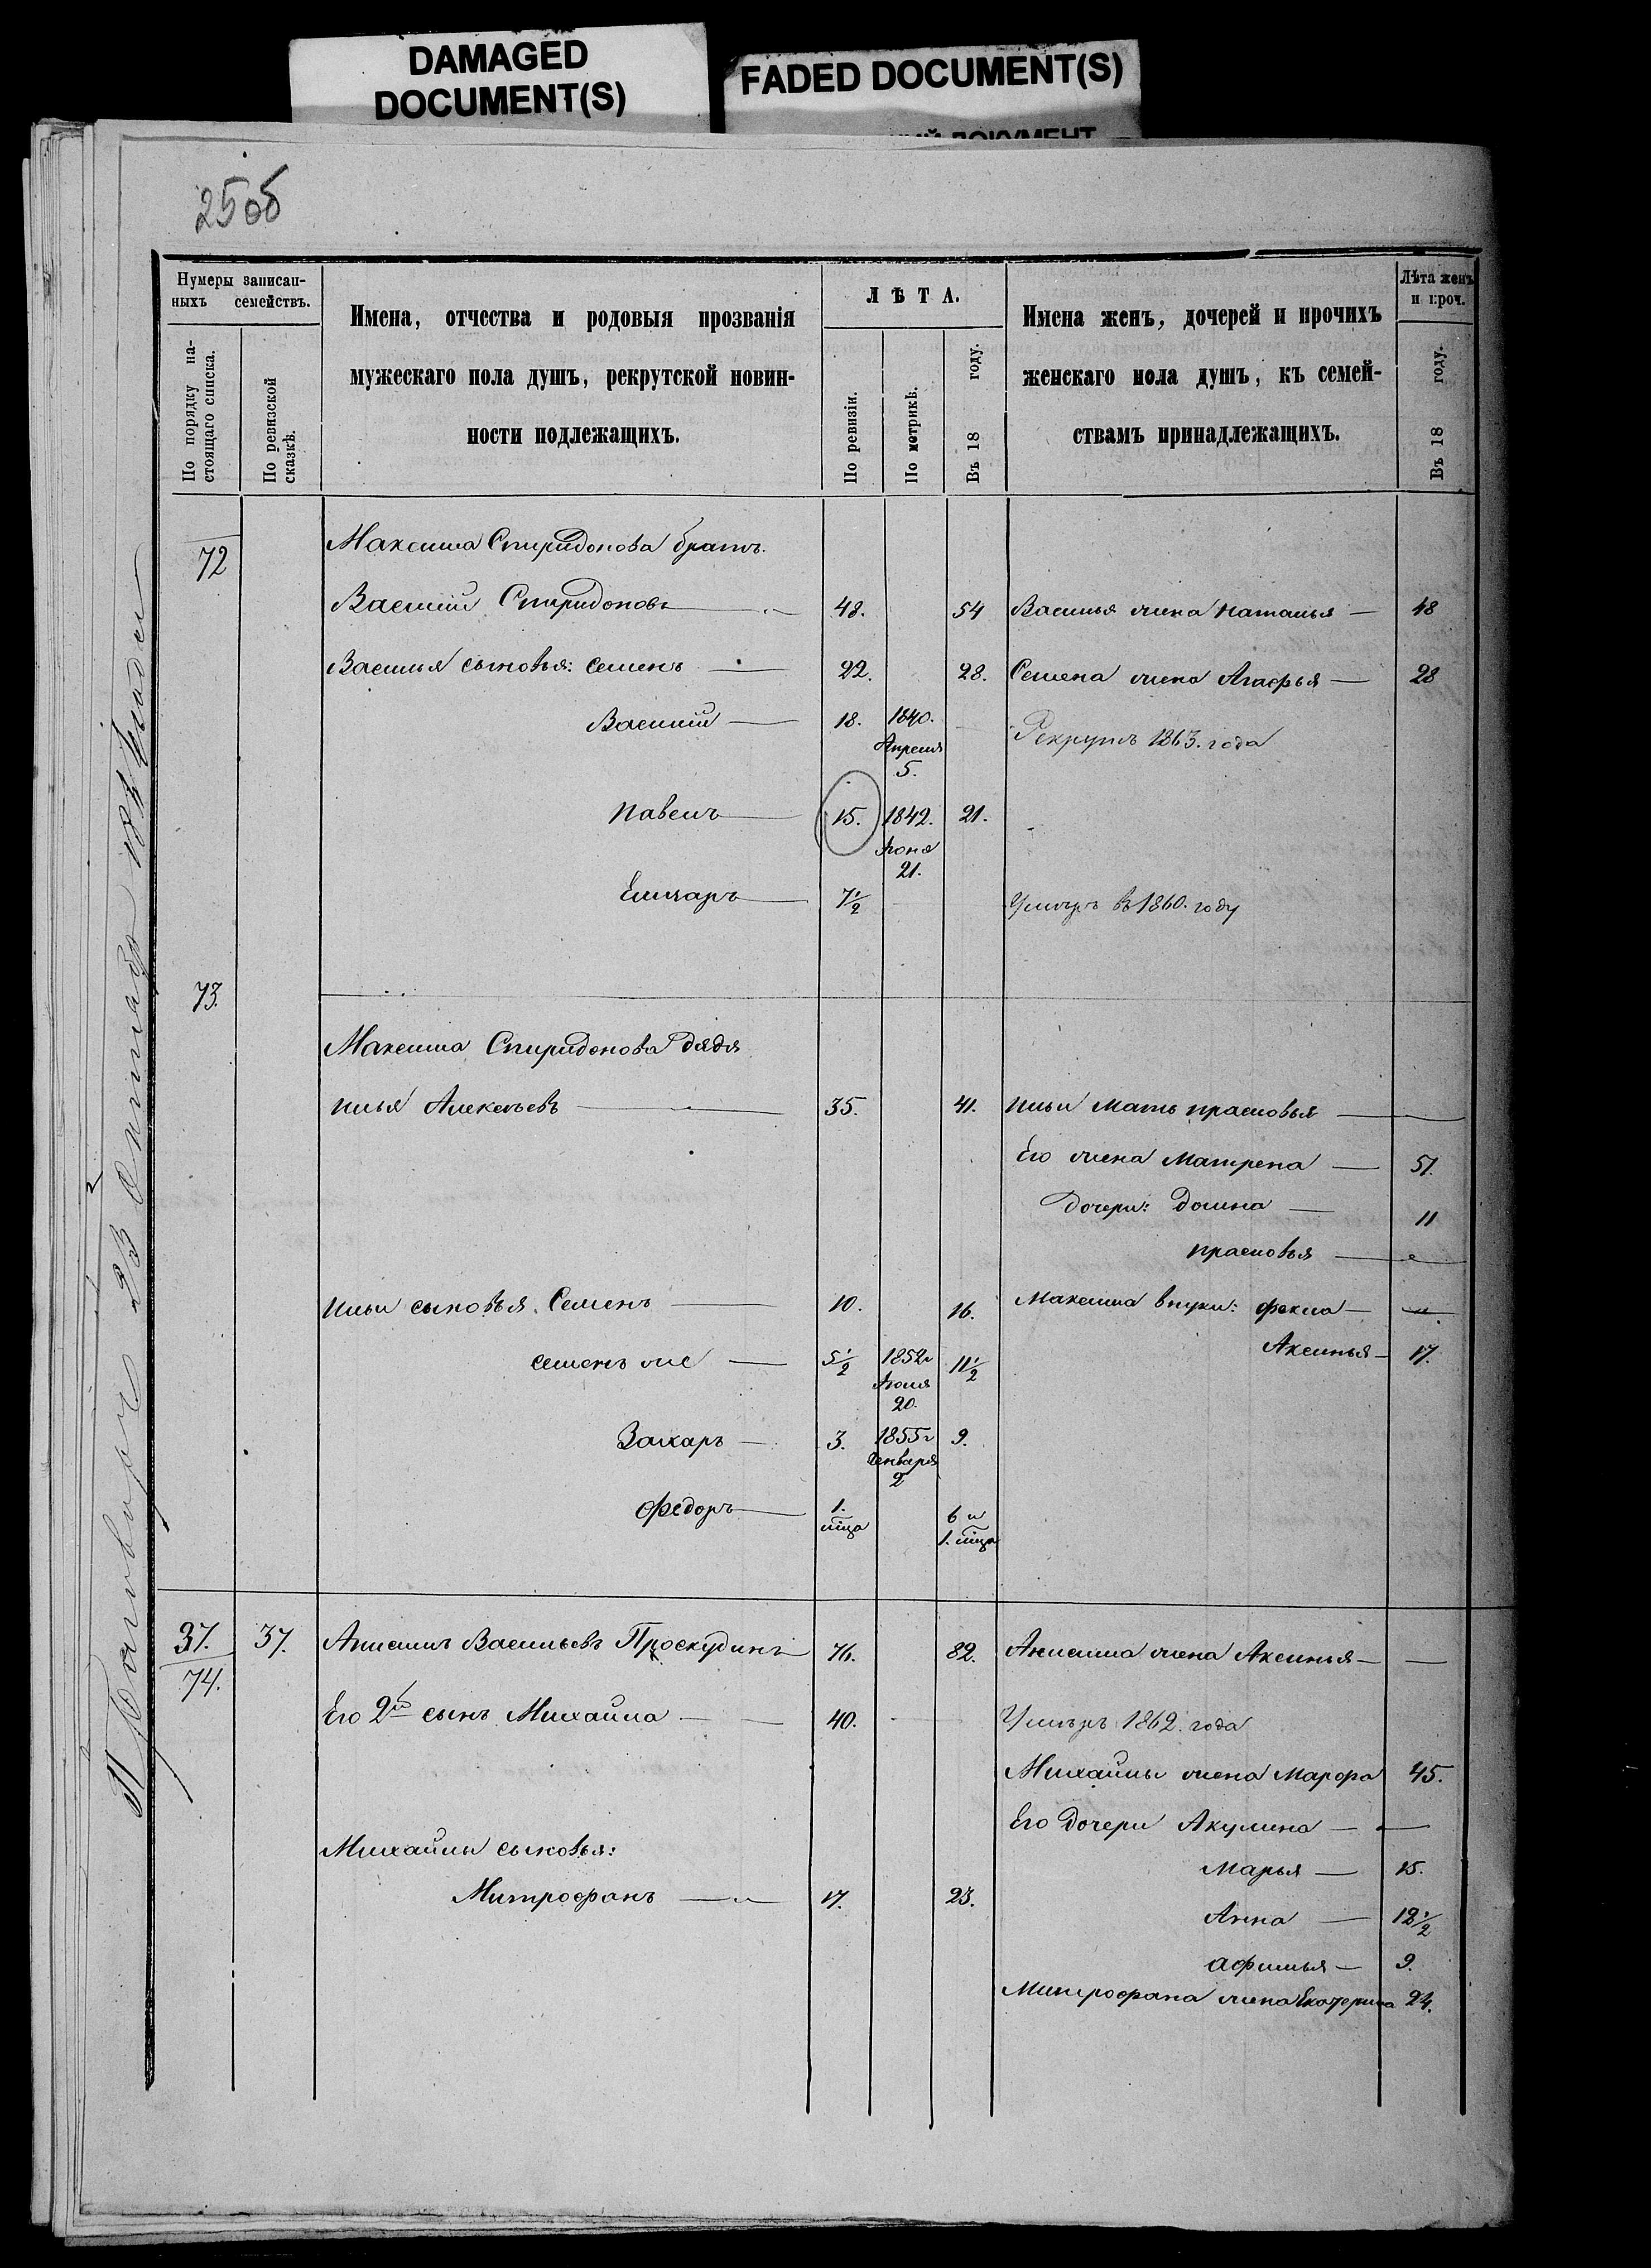 DAMAGED
DOCUMENT(S)
FADED DOCUMENT(S)
ДОКУМЕНТ
25об
Нумеры записан-
ныхъ семействъ.
По порядку на-
стоящаго списка.
По ревизской
сказкѣ.
Имена, отчества и родовыя прозванія
мужескаго пола душъ, рекрутской повин-
ности подлежащихъ.
ЛѢТА.
По ревизіи.
По метрикѣ.
Въ 18 году.
Имена женъ, дочерей и прочихъ
женскаго пола душъ, къ семей-
ствамъ принадлежащихъ.
Лѣта женъ
и проч.
Въ 18 году.
72 Максима Спиридонова братъ
Василій Спиридоновъ 48. 54 Василья жена Наталья 48
Василья сыновья: Семенъ 22. 28. Семена жена Агафья 28
Василій 18. 1840. Апреля 5. Рекрутъ 1863. года
Павелъ 15. 1842. Іюня 21. 21.
7½ Умеръ въ 1860. году
73. Максима Спиридонова дядя
Илья Алексѣевъ 35. 41. Ильи мать Прасковья
Его жена Матрена 51.
Дочери: Домна 11
Прасковья
Ильи сыновья. Семенъ 10. 16. Максима внуки: Фекла
Семенъ же 5½ 1852г Іюля 20. 11½ Аксинья 17.
Захаръ 3. 1855г Генваря 2 9.
Федоръ 1. мѣца 6 и 1. мѣца
37. 74. 37. Анисимъ Васильевъ Проскудинъ 76. 82. Анисима жена Аксинья
Его 2й сынъ Михайла 40. Умеръ 1862. года
Михайлы жена Марфа 45.
Его дочери Акулина
Михайлы сыновья:
Марья 15.
Митрофанъ 17. 23.
Анна 12½
Афимья 9.
Митрофана жена Екатерина 24.